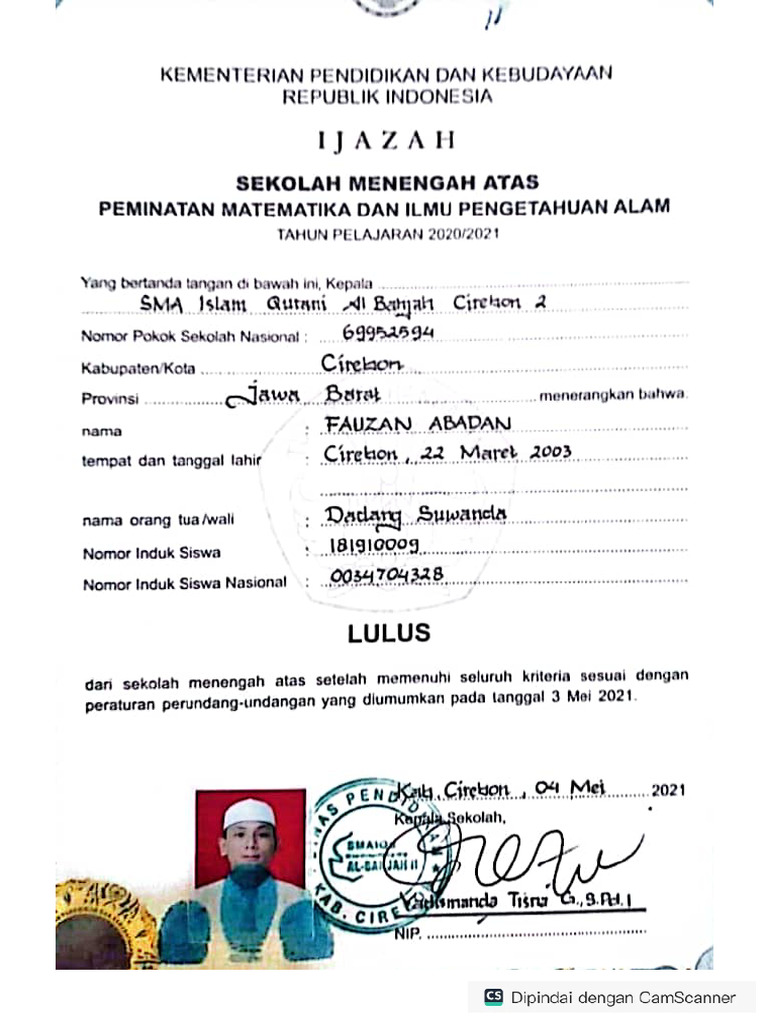 KEMENTERIAN PENDIDIKAN DAN KEBUDAYAAN
REPUBLIK INDONESIA
IJAZAH
SEKOLAH MENENGAH ATAS
PEMINATAN MATEMATIKA DAN ILMU PENGETAHUAN ALAM
TAHUN PELAJARAN 2020/2021
Yang bertanda tangan di bawah ini, Kepala
SMA Islam Qurani Al Bahjah Cirebon 2
Nomor Pokok Sekolah Nasional : 69952594
Kabupaten/Kota Cirebon
Provinsi Jawa Barat menerangkan bahwa:
nama : FAUZAN ABADAN
tempat dan tanggal lahir : Cirebon, 22 Maret 2003
nama orang tua/wali : Dadang Suwanda
Nomor Induk Siswa : 181910009
Nomor Induk Siswa Nasional : 0034704328
LULUS
dari sekolah menengah atas setelah memenuhi seluruh kriteria sesuai dengan
peraturan perundang-undangan yang diumumkan pada tanggal 3 Mei 2021.
Kab. Cirebon, 04 Mei 2021
Kepala Sekolah,
Tisna G., S.Pd.I
NIP.
CS Dipindai dengan CamScanner